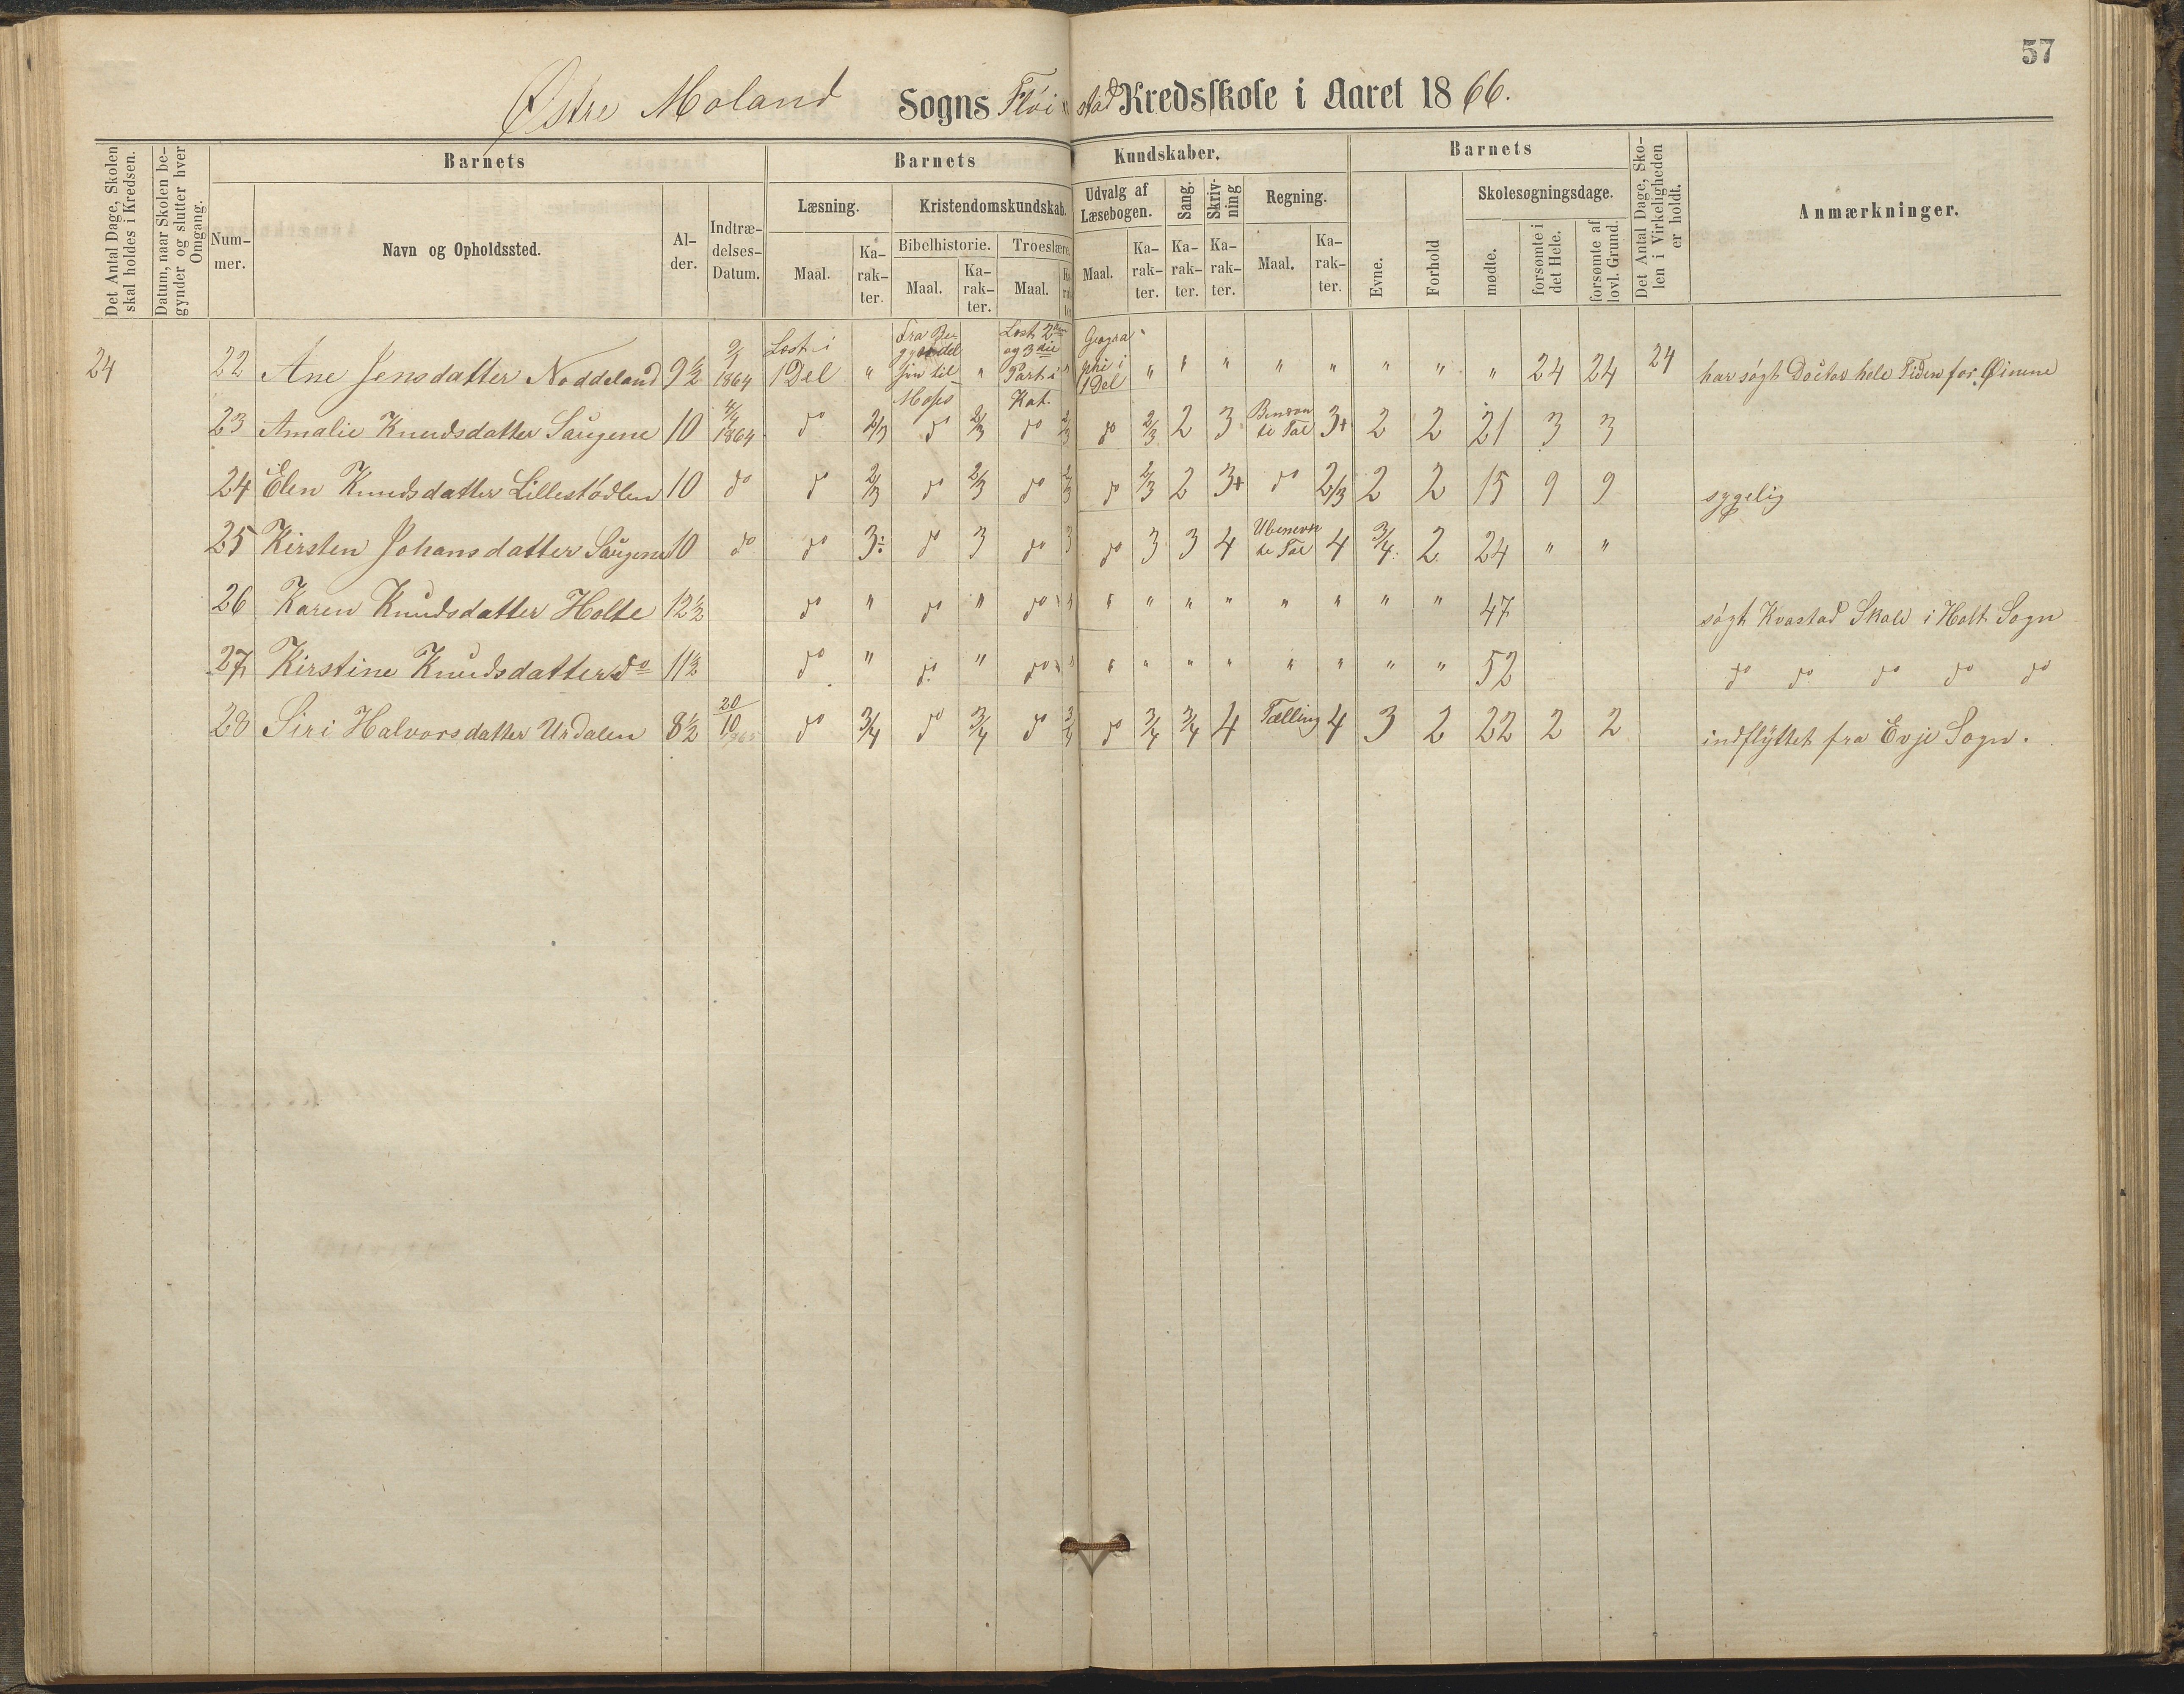 57
Østre Moland Sogns Fløistad Kredsskole i Aaret 1866.
Det Antal Dage, Skolen skal holdes i Kredsen.
Datum, naar Skolen begynder og slutter hver Omgang.
Barnets
Barnets Kundskaber.
Barnets
Det Antal Dage, Skolen i Virkeligheden er holdt.
Anmærkninger.
Num-mer.
Navn og Opholdssted.
Al-der.
Indtræ-delses-Datum.
Læsning.
Kristendomskundskab.
Udvalg af Læsebogen.
Sang.
Skriv-ning
Regning.
Evne.
Forhold
Skolesøgningsdage.
Maal.
Ka-rak-ter.
Bibelhistorie.
Troeslære.
Maal.
Ka-rak-ter.
Maal.
Ka-rak-ter.
Maal.
Ka-rak-ter.
Ka-rak-ter.
Ka-rak-ter.
Maal.
Ka-rak-ter.
mødte.
forsømte i det Hele.
forsømte af lovl. Grund.
24 22 Ane Jensdatter Noddeland 9½ 9/1 1864 Læst i 1 Del " til Moses " Læst 2den og 3die Part i Kat. " Geographi i 1 Del " " " " " " " " 24 24 24 har søgt Doctor hele Tiden for Øinene
23 Amalie Knudsdatter Saugene 10 1864 do 2/3 do 2/3 do 2/3 do 2/3 2 3 Benævnte Tal 3+ 2 2 21 3 3
24 Elen Knudsdatter Lillestødlen 10 do do 2/3 do 2/3 do 2/3 do 2/3 2 3+ do 2/3 2 2 15 9 9 sygelig
25 Kirsten Johansdatter Saugene 10 do do 3÷ do 3 do 3 do 3 3 4 Ubenevnte Tal 4 3/4 2 24 " "
26 Karen Knudsdatter Holte 12½ do " do " do " " " " " " " " " 47 søgt Kvastad Skole i Holt Sogn
27 Kirstine Knudsdatter do 11½ do " do " do " " " " " " " " " 52 do do do do do
28 Siri Halvorsdatter Urdalen 8½ 20/10 do 3/4 do 3/4 do 3/4 do 3/4 3/4 4 Tælling 4 3 2 22 2 2 indflyttet fra Evje Sogn.